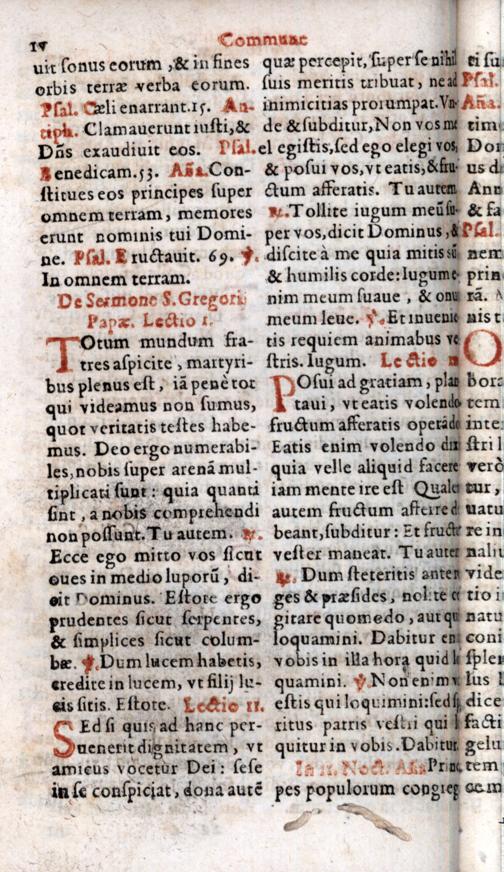 iv
Commune
uit sonus eorum ,& in fines
orbis terræ verba eorum.
Psal. Cæli enarrant.15. An-
tiph. Clamauerunt iusti,&
Dñs exaudiuit eos. Psal.
Benedicam.53. Aña.Con-
stitues eos principes super
omnem terram, memores
erunt nominis tui Domi-
ne. Psal. Eructauit. 69. ℣.
In omnem terram.
De Sermone S.Gregorii
Papæ. Lectio 1.
TOtum mundum fra-
tres aspicite , martyri-
bus plenus est, iã penè tot
qui videamus non sumus,
quot veritatis testes habe-
mus. Deo ergo numerabi-
les,nobis super arenã mul-
tiplicati sunt : quia quanti
sint , a nobis comprehendi
non possunt. Tu autem. ℟.
Ecce ego mitto vos sicut
oues in medio luporũ, di-
cit Dominus. Estore ergo
prudentes sicut serpentes,
& simplices sicut colum-
bæ. ℣.Dum lucem habetis,
credite in lucem, vt filij lu-
cis sitis. Estote. Lectio 11.
SEd si quis ad hanc per-
uenerit dignitatem , vt
amicus vocetur Dei : sese
in se conspiciat, dona autẽ
quæ percepit, super se nihil
suis meritis tribuat, ne ad
inimicitias prorumpat. Vn-
de & subditur, Non vos me
el egistis, sed ego elegi vos,
& posui vos, vt eatis, & fru-
ctum afferatis. Tu autem
℟.Tollite iugum meũ su-
per vos, dicit Dominus , &
discite à me quia mitis sũ
& humilis corde: Iugum e-
nim meum suaue , & onu
meum leue. ℣.Et inuenie
tis requiem animabus ve
stris. Iugum. Lectio 11
POsui ad gratiam, plan
taui , vt eatis volendo
fructum afferatis operãdo
Eatis enim volendo dixi
quia velle aliquid facere
iam mente ire est Quale
autem fructum afferre de
beant, subditur : Et fructu
vester maneat. Tu autem
℟. Dum steteritis ante
ges & præsides, nolite co
gitare quomodo , aut qu
loquamini. Dabitur en
vobis in illa hora quid l
quamini. ℣.Non enim v
estis qui loquimini: sed s
ritus patris vestri qui l
quitur in vobis. Dabitur
In 11. Noct. Aña Prin
pes populorum congreg